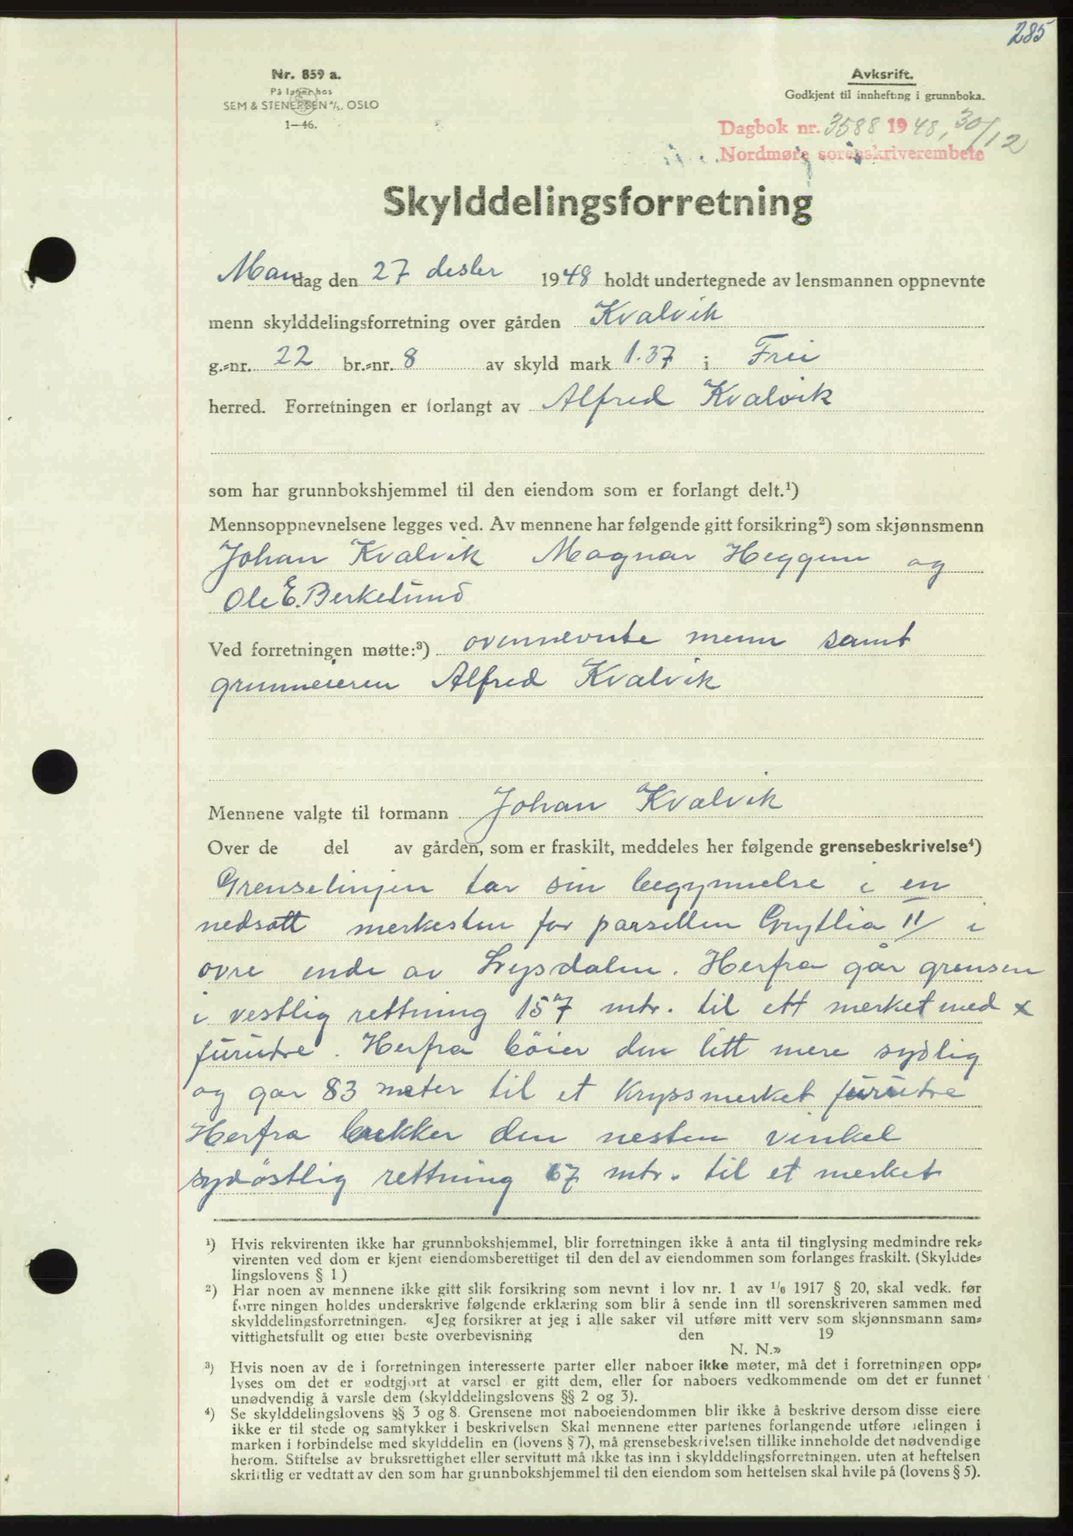 285
Nr. 859 a.
På lager hos
SEM & STENERSEN A/S. OSLO
1—46.
Avksrift.
Godkjent til innhefting i grunnboka.
Dagbok nr. 3588 1948, 30/12
Nordmøre sorenskriverembete
Skylddelingsforretning
Mandag den 27 desbr 1948 holdt undertegnede av lensmannen oppnevnte
menn skylddelingsforretning over gården Kvalvik
g.-nr. 22 br.-nr. 8 av skyld mark 1.37 i Frei
herred. Forretningen er forlangt av Alfred Kvalvik
som har grunnbokshjemmel til den eiendom som er forlangt delt.¹)
Mennsoppnevnelsene legges ved. Av mennene har følgende gitt forsikring²) som skjønnsmenn
Johan Kvalvik Magnar Heggem og
Ole E. Berkelund
Ved forretningen møtte:³) ovennevnte menn samt
grunneieren Alfred Kvalvik
Mennene valgte til formann Johan Kvalvik
Over de del av gården, som er fraskilt, meddeles her følgende grensebeskrivelse⁴)
Grenselinjen tar sin begynnelse i en
nedsatt merkesten for parsellen Gryllia II i
øvre ende av Lysdalen. Herfra går grensen
i vestlig rettning 157 mtr. til ett merket med x
furutre. Herfra bøier den litt mere sydlig
og går 83 meter til et kryssmerket furutre
Herfra brekker den nesten vinkel
sydøstlig rettning 67 mtr. til et merket
¹) Hvis rekvirenten ikke har grunnbokshjemmel, blir forretningen ikke å anta til tinglysing medmindre rek-
virenten ved dom er kjent eiendomsberettiget til den del av eiendommen som forlanges fraskilt. (Skyldde-
lingslovens § 1)
²) Har noen av mennene ikke gitt slik forsikring som nevnt i lov nr. 1 av 1/6 1917 § 20, skal vedk. før
forretningen holdes underskrive følgende erklæring som blir å sende inn til sorenskriveren sammen med
skylddelingsforretningen. «Jeg forsikrer at jeg i alle saker vil utføre mitt verv som skjønnsmann sam-
vittighetsfullt og etter beste overbevisning den 19
N. N.»
³) Hvis noen av de i forretningen interesserte parter eller naboer ikke møter, må det i forretningen opp-
lyses om det er godtgjort at varsel er gitt dem, eller for naboers vedkommende om det er funnet
unødvendig å varsle dem (skylddelingslovens §§ 2 og 3).
⁴) Se skylddelingslovens §§ 3 og 8. Grensene mot naboeiendommen blir ikke å beskrive dersom disse eiere
ikke er til stede og samtykker i beskrivelsen Skal mennene etter partenes forlangende utføre delingen i
marken i forbindelse med skylddelingen (lovens § 7), må grensebeskrivelsen tillike inneholde det nødvendige
herom. Stiftelse av bruksrettighet eller servitutt må ikke tas inn i skylddelingsforretningen. uten at heftelsen
skriftlig er vedtatt av den som har grunnbokshjemmel til den eiendom som heftelsen skal hvile på (lovens § 5).